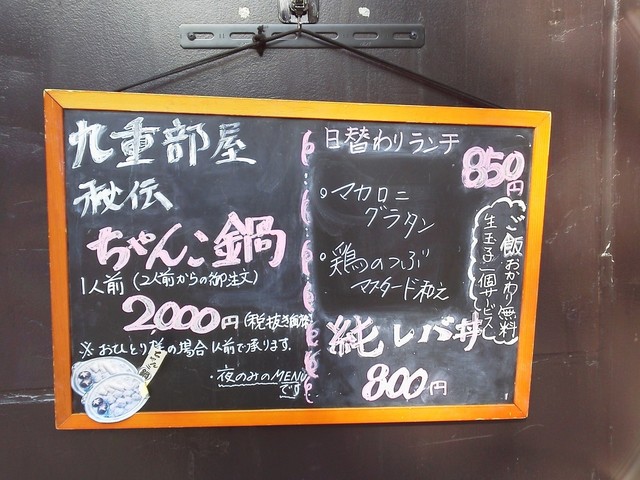 九重部屋
秘伝
ちゃんこ鍋
1人前（2人前からの御注文）
2,000円（税抜き価格）
※おひとり様の場合1人前で承ります
・夜のみのMENU
です
日替わりランチ
850円
・マカロニ
グラタン
・鶏のつぶ
マスタード和え
ご飯おかわり無料
生玉子一個サービス
純レバ丼
800円